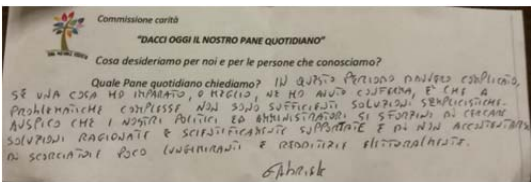 Commissione carità
"DACCI OGGI IL NOSTRO PANE QUOTIDIANO"
Cosa desideriamo per noi e per le persone che conosciamo?
Quale Pane quotidiano chiediamo? IN QUESTO PERIODO DAVVERO COMPLICATO,
SE UNA COSA HO IMPARATO, O MEGLIO, NE HO AVUTO CONFERMA, È CHE A
PROBLEMATICHE COMPLESSE NON SONO SUFFICIENTI SOLUZIONI SEMPLICISTICHE.
AUSPICO CHE I NOSTRI POLITICI ED AMMINISTRATORI SI SFORZINO DI CERCARE
SOLUZIONI RAGIONATE E SCIENTIFICAMENTE SUPPORTATE E DI NON ACCONTENTARSI
DI SCORCIATOIE POCO LUNGIMIRANTI E REDDITIZIE ELETTORALMENTE.
GABRIELE